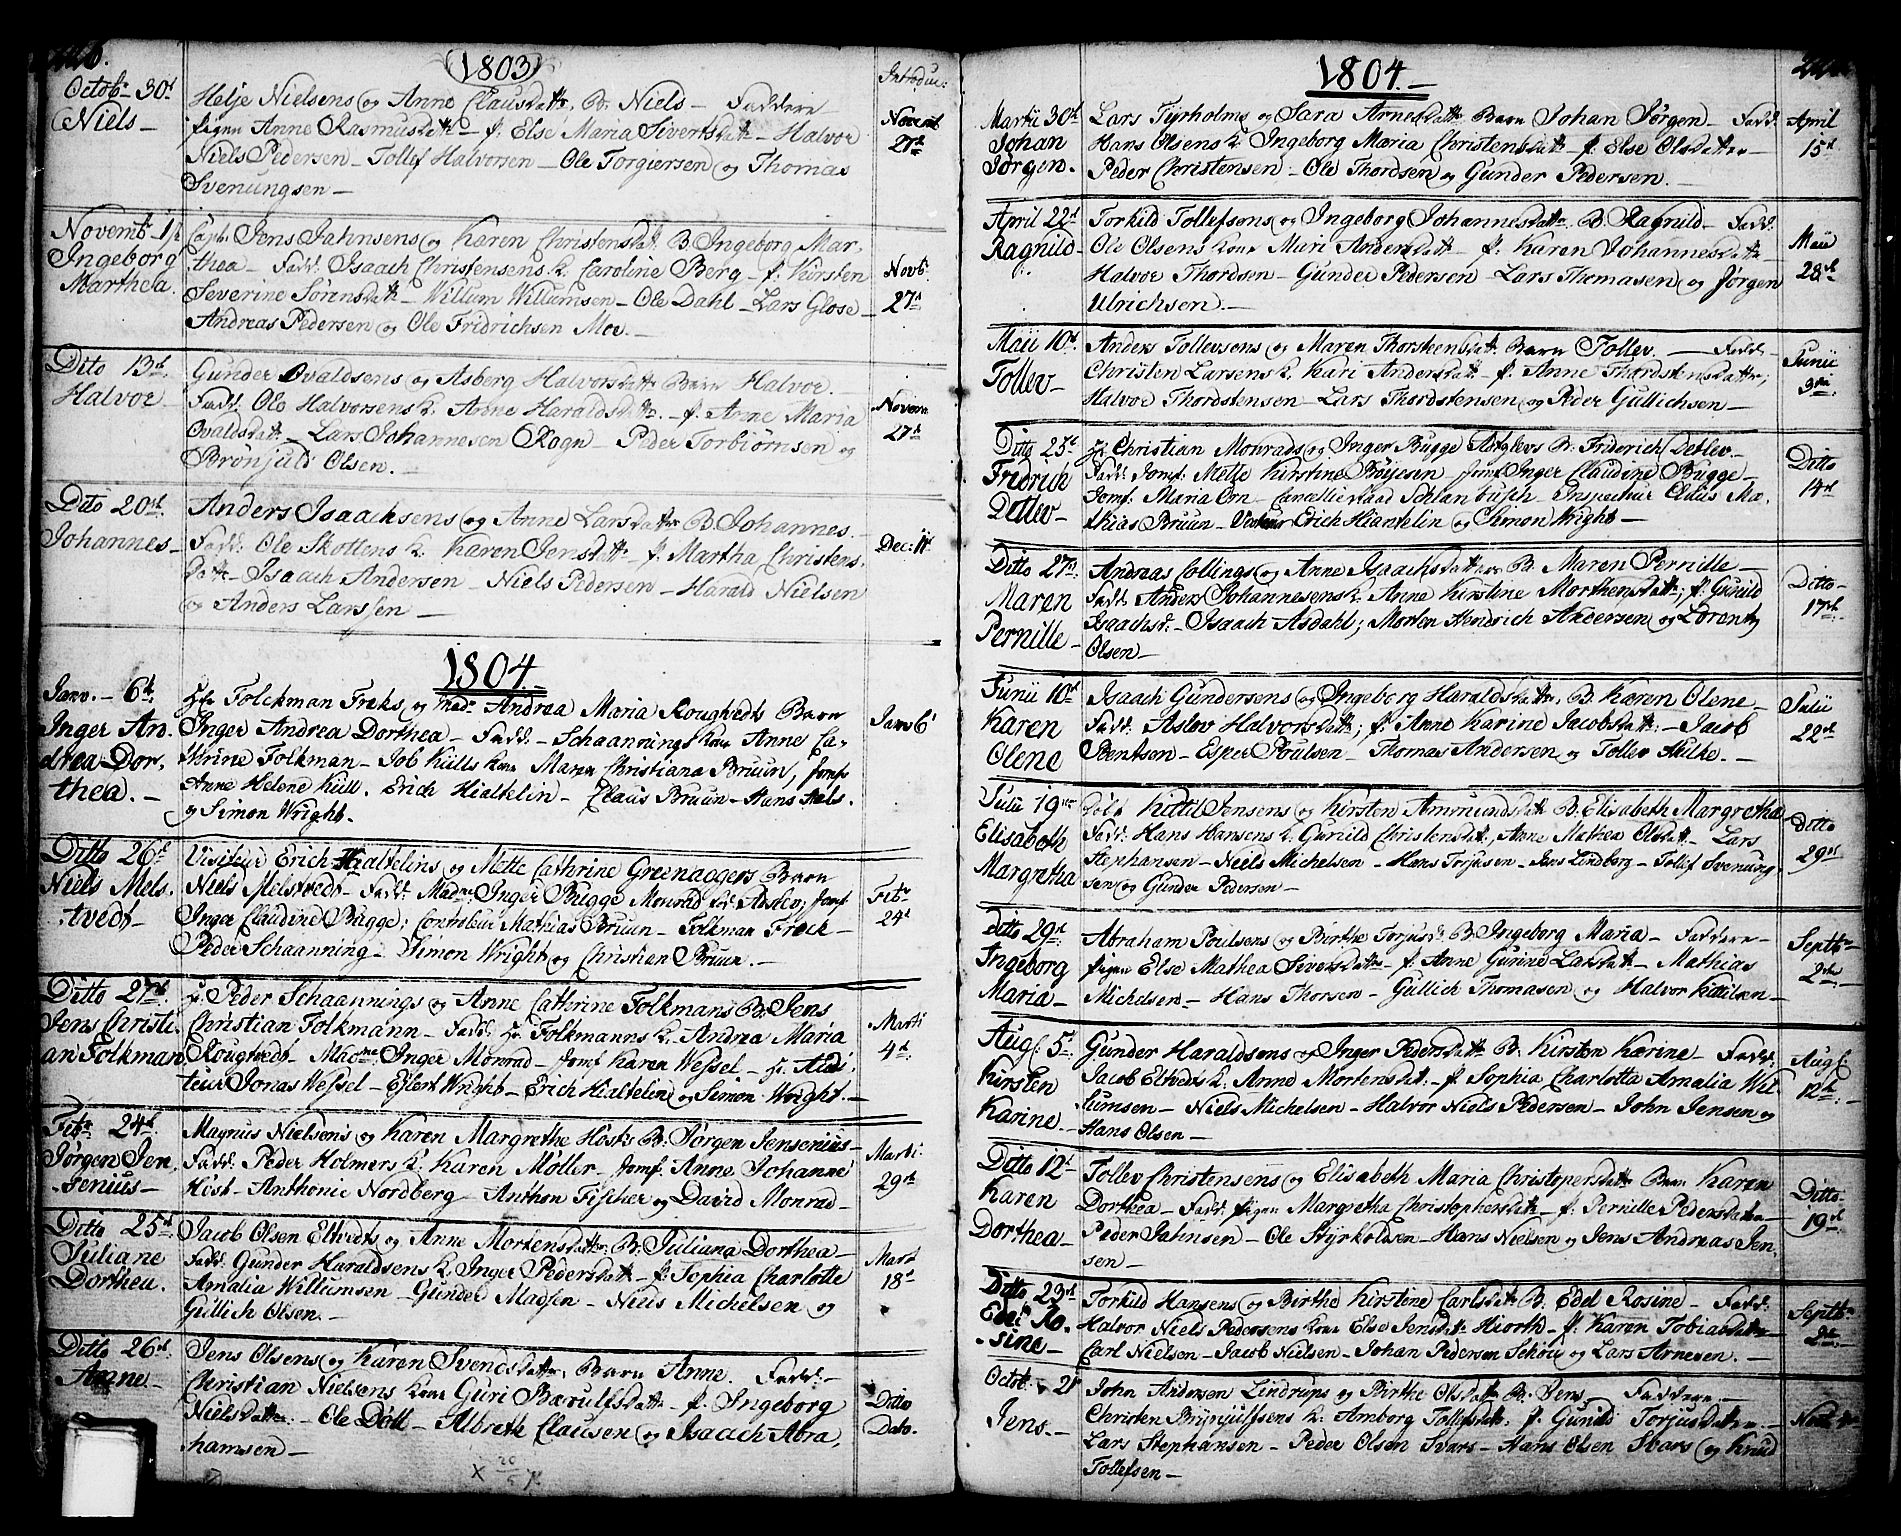 1803
Introduc:
Octobr 30d
Niels
Helje Nielsens og Anne Clausdattr, B. Niels — Faddere
pigen Anne Rasmusdattr — p. Else Maria Sivertsdattr — Halvor
Niels Pedersen — Tollef Halvorsen — Ole Torgiersen og Thomas
Svenungsen —
Novembr
27de
Novembr 1ste
Ingeborg
Marthea.
Capt. Jens Jahnsens og Karen Christensdat. B. Ingeborg Mar-
thea — Fadd. Isaach Christensens K. Caroline Berg — p. Kirsten
Severine Sørensdattr — Willum Willumsen — Ole Dahl — Lars Glose —
Andreas Pedersen og Ole Fridrichsen Moe. —
Novb.
27d
Dito 13de
Halvor
Gunder Ovaldsens og Asberg Halvorsdattr Barn Halvor. —
Fadd. Ole Halvorsens K. Anne Haraldsdattr. — p. Anne Maria
Ovaldsdattr — Lars Johannesen Rogn — Peder Torbiørnsen og
Brønjuld Olsen. —
Novem
27d
Dito 20de
Johannes —
Anders Isaachsens og Anne Larsdatter B. Johannes. —
Fadd: Ole Skottens K. Karen Jensdattr p. Martha Christens
dattr — Isaach Andersen — Niels Pedersen — Harald Nielsen
og Anders Larssen —
Dec: 11te
1804.
Janv. — 6te
Inger An-
drea Dor-
thea. —
Hr Folckman Freks og Mad. Andrea Maria Rougtvedts Barn
Inger Andrea Dorthea — Fadd. — Schaannings Kone Anne Ca-
thrine Folkman — Job Külls Kone Maren Christiana Bruun, Jomf
Anne Helene Küll. Erich Hialtelin — Claus Bruun — Hans Kels.
og Simon Wright.
Janv 6t
Ditto 26d
Niels Mels-
tvedt —
Visiteur Erich Hialtelins og Mette Cathrine Greenaggers Barn
Niels Melstvedt — Fadd. Madme Inger Bugge Monrad fød Adslev; Jomf
Inger Claudine Bugge; Controleur Mathias Bruun — Folkman Freek —
Peder Schaanning — Simon Wright og Christian Bruun. —
Febr
24d
Ditto 27de
Jens Christi-
an Folkman
Hr. Peder Schaannings og Anne Cathrine Folkmans B. Jens
Christian Folkmann — Fadd. Hr. Folkmanns K. Andrea Maria
Rougtvedt — Madme Inger Monrad — Jomf Karen Wessel — Hr. Audi-
teur Jonas Wessel — Ejlert Wright — Erich Hialtelin og Simon Wright. —
Marti
4de
Febr 24d.
Jørgen Jen-
senius —
Magnus Nielsens og Karen Margrethe Høst's B. Jørgen Jensenius —
Fadd. Peder Holmers K. Karen Møller — Jomf. Anne Johanne
Høst — Anthonie Nordberg — Anthon Fischer og David Monrad —
Marti.
29de
Ditto 25d
Juliane
Dorthea.
Jacob Olsen Eltvedts og Anne Mortensdatter, B. Juliana Dorthea —
Fadd. Gunder Haraldsens K. Inger Pedersdattr — p. Sophia Charlotte
Amalia Willumsen — Gunder Madsen — Niels Michelsen og
Gullich Olsen. —
Mart
18d
Ditto 26de
Anne —
Jens Olsens og Karen Svendsdatter, Barn Anne. Fadd. —
Christian Nielsens Kone Guri Barulfsdattr — p. Ingeborg
Nielsdatter — Ole Døll — Albreth Clausen og Isaach Abra-
hamsen —
Ditto
Dato.
1804.
Martii 30d
Johan
Jørgen.
Lars Fyrholms og Sara Arnesdattr Barn Johan Jørgen — Fadd.
Hans Olsens K. Ingeborg Maria Christensdattr — p. Else Olsdatter —
Peder Christensen — Ole Thordsen og Gunder Pedersen. —
April
15d
April 22d
Ragnild —
Torkild Tollefsons og Ingeborg Johannesdattr. B. Ragnild — Fadd.
Ole Olsens Kone Muri Andersdattr — p. Karen Johannesdattr —
Halvor Thordsen — Gunder Pedersen — Lars Thomasen og Jørgen
Ulrichsen —
Maii
28de
Maii 10d.
Tollev —
Anders Tollevsens og Maren Thorsteensdattr. Barn Tollev. — Fadd —
Christen Larsens K. Kari Andersdattr — p. Anne Thordstensdatter;
Halvor Thordstensen — Lars Thordstensen og Peder Gullichsen —
Junii
3die
Ditto 25d
Fridrich
Detlev —
Hr Christian Monrads og Inger Bugge Adslevs B. Friderich Detlev —
Fadd. Jomf. Mette Kirstine Bøyesen Jomf. Inger Claudine Bugge —
Jomf. Maria Ørn — Cancelliraad Schlanbusch — Inspecteur Clitus Ma-
thias Bruun — Visiteur Erich Hiantelin og Simon Wright —
Ditto
14de
Ditto 27de
Maren
Pernille —
Andreas Collings og Anne Isaachsdatter B. Maren Pernille —
Fadd. Anders Johannesens K. Anne Kirstine Morthensdattr; p. Gunild
Isaachsd. — Isaach Asdahl; Morten Hendrich Andersen og Lorentz
Olsen —
Ditto —
17de
Junii 10d
Karen
Olene
Isaach Gundersens og Ingeborg Haraldsdatter, B. Karen Olene —
Fadd. Aslov Halvorsdattr; p. Anne Karine Jacobsdattr — Jacob
Bentsen — Esper Poulsen — Thomas Andersen og Tollev Hulke. —
Julii
22de
Julii 19de
Elisabeth
Margretha
Kittil Jensens og Kirsten Ammundsdattr B. Elisabeth Margretha
Fadd. Hans Hansens K. Gunild Christensdattr, Anne Mathea Olsdattr — Lars
Stephansen — Niels Michelsen — Hans Torjusen — Jens Lindberg — Tollef Svenung-
sen og Gunder Pedersen —
Ditto
29de
Ditto 29d.
Ingeborg
Maria —
Abraham Poulsens og Birthe Torjusd. B. Ingeborg Maria — Faddere —
pigen Else Mathea Siversdattr — p. Anne Gurine Larsdattr — Mathias
Michelsen — Hans Thorsen — Gullich Thomasen og Halvor Kittilsen —
Septbr
2den
Aug. 5te
Kirsten
Karine —
Gunder Haraldsens og Inger Pedersdattr B. Kirsten Karine — Fadd:
Jacob Eltveds K. Anne Mortensdat. — p. Sophia Charlotta Amalia Wil-
lumsen — Niels Michelsen — Halvor Niels Pedersen — John Jensen og
Hans Olsen —
Aug.
12te —
Ditto 12te
Karen
Dorthea —
Tollev Christensens og Elisabeth Maria Christopersdattr Barn Karen
Dorthea — Fadd. pigen Margretha Christophersdattr — p. Pernille Pedersdatter —
Peder Jahnsen — Ole Styrkoldsen — Hans Nielsen og Jens Andreas Jen-
sen —
Ditto —
19de
Ditto 23de
Edel Ro-
sine —
Torkild Hansens og Birthe Kirstine Carlsdattr B. Edel Rosine — Fadd.
Halvor Niels Pedersens Kone Else Jensdattr Hiorth — p. Karen Tobiasdatter —
Carl Nielsen — Jacob Nielsen — Johan Pedersen Schou og Lars Arnesen. —
Septbr
2de
Octob. 21
Jens —
John Andersen Lindrups og Birthe Olsdattr B. Jens — Faddere —
Christen Brynjulfsens K. Amborg Tollefsdattr. p. Gunild Torjusdatter —
Lars Stephansen — Peder Olsen Svars — Hans Olsen Svars og Knud
Tollefsen —